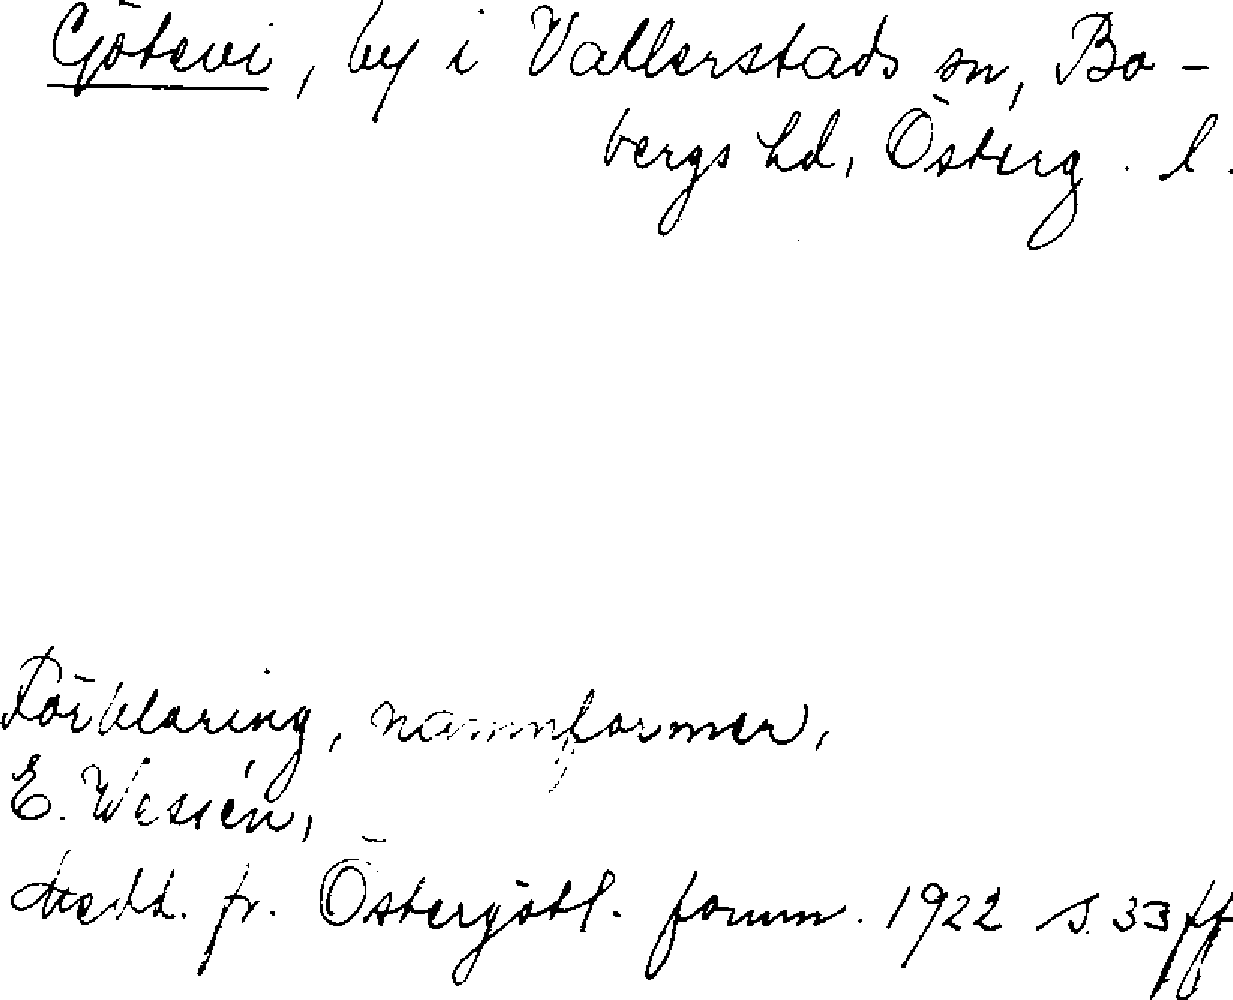 Götevi, by i Vallerstads sn, Bo-
bergs hd, Österg. l.
Förklaring, namnformer,
E. Wessén,
Medd. fr. Östergötl. fornm. 1922 s. 33 ff